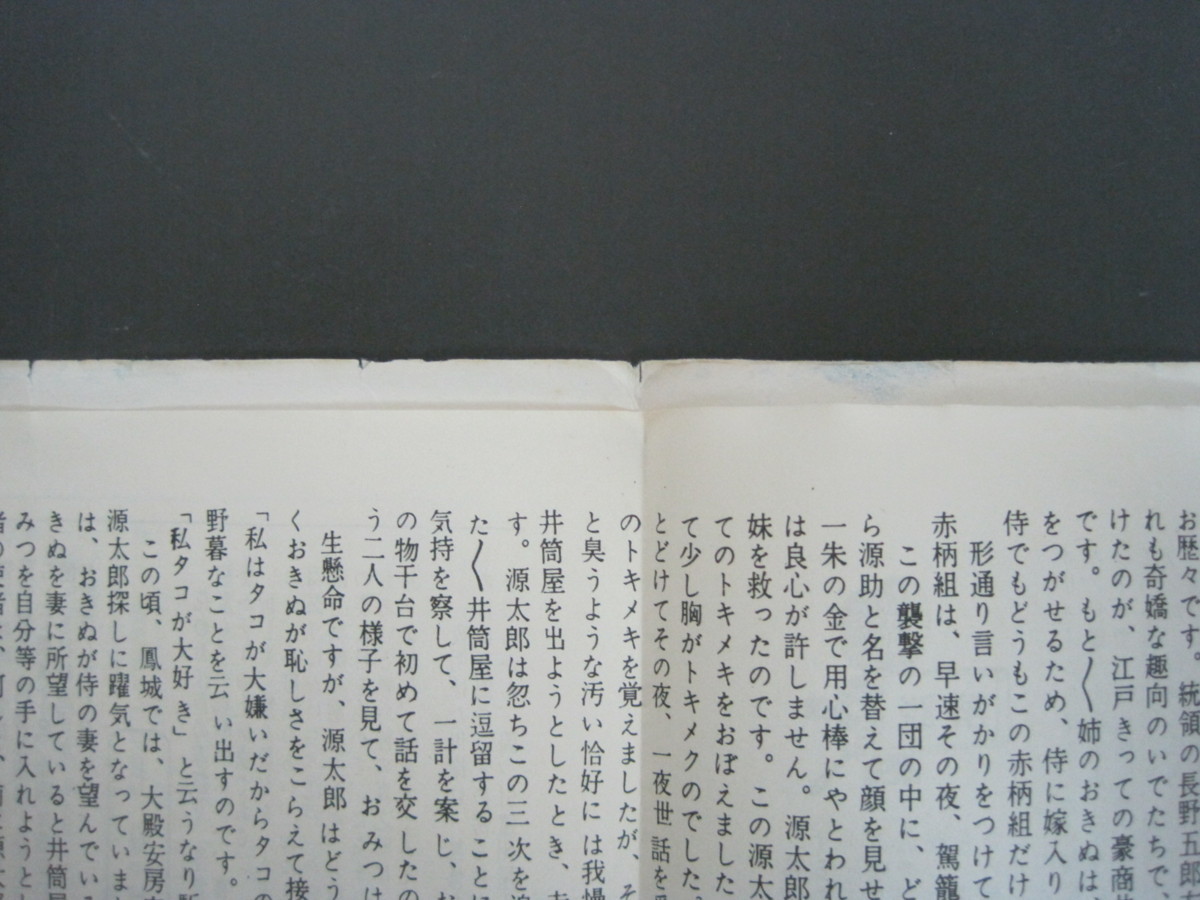 お歴々です。統領の長野五郎左
れも奇嬌な趣向のいでたちで、
けたのが、江戸きっての豪商井
です。もと〱姉のおきぬは、
をつがせるため、侍に嫁入り
侍でもどうもこの赤柄組だけ
形通り言いがかりをつけて
赤柄組は、早速その夜、駕籠
この襲撃の一団の中に、ど
ら源助と名を替えて顔を見せ
一朱の金で用心棒にやとわれ
は良心が許しません。源太郎
妹を救ったのです。この源太
てのトキメキをおぼえました
て少し胸がトキメクのでした。
とどけてその夜、一夜世話を
のトキメキを覚えましたが、そ
と臭うような汚い恰好には我慢
井筒屋を出ようとしたとき、
す。源太郎は忽ちこの三次を
た〱井筒屋に逗留することに
気持を察して、一計を案じ、お
の物干台で初めて話を交したの
う二人の様子を見て、おみつは
生懸命ですが、源太郎はどう
くおきぬが恥しさをこらえて接
「私はタコが大嫌いだからタコの
野暮なことを云い出すのです。
「私タコが大好き」と云うなり
この頃、鳳城では、大殿安房
源太郎探しに躍気となっていま
は、おきぬが侍の妻を望んでい
きぬを妻に所望していると井筒屋
みつを自分等の手に入れようと